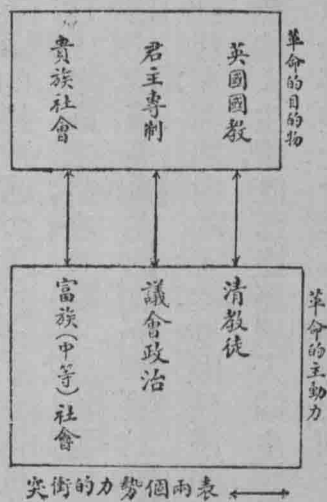 革命的目的物
英國國教
君主專制
貴族社會
革命的主動力
清教徒
議會政治
富族(中等)社會
表兩個勢力的衝突